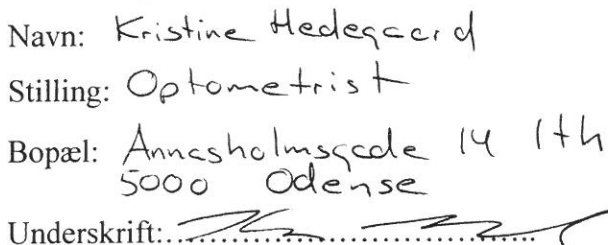 Navn: Kristine Hedegaard
Stilling: Optometrist
Bopæl: Annasholmsgade 14 1th
5000 Odense
Underskrift: